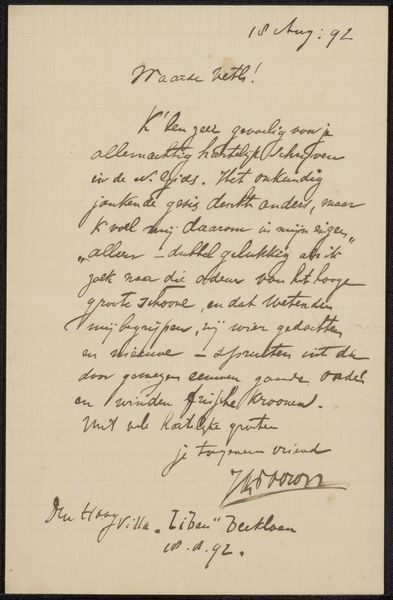 18 Aug: 92
Waarde Veth!
K' ben zeer gevoelig voor je
allemachtig hartelijk schrijven
in de N. Gids. Het onkundig
jankende denkt anders, maar
k voel mij daarom in mijn eigen
„alleen - dubbel gelukkig als ik
zoek naar die van het hooge
groote schoone, en dat wetenden
mij begrijpen, zij wier gedachten
en nieuwe - spruiten uit de
door eeuwen gaande
en winden frissche kroonen.
Met vele hartelijke groeten
je toegenegen vriend
Den Haag Villa „Liban" Beeklaan
18.8.92.